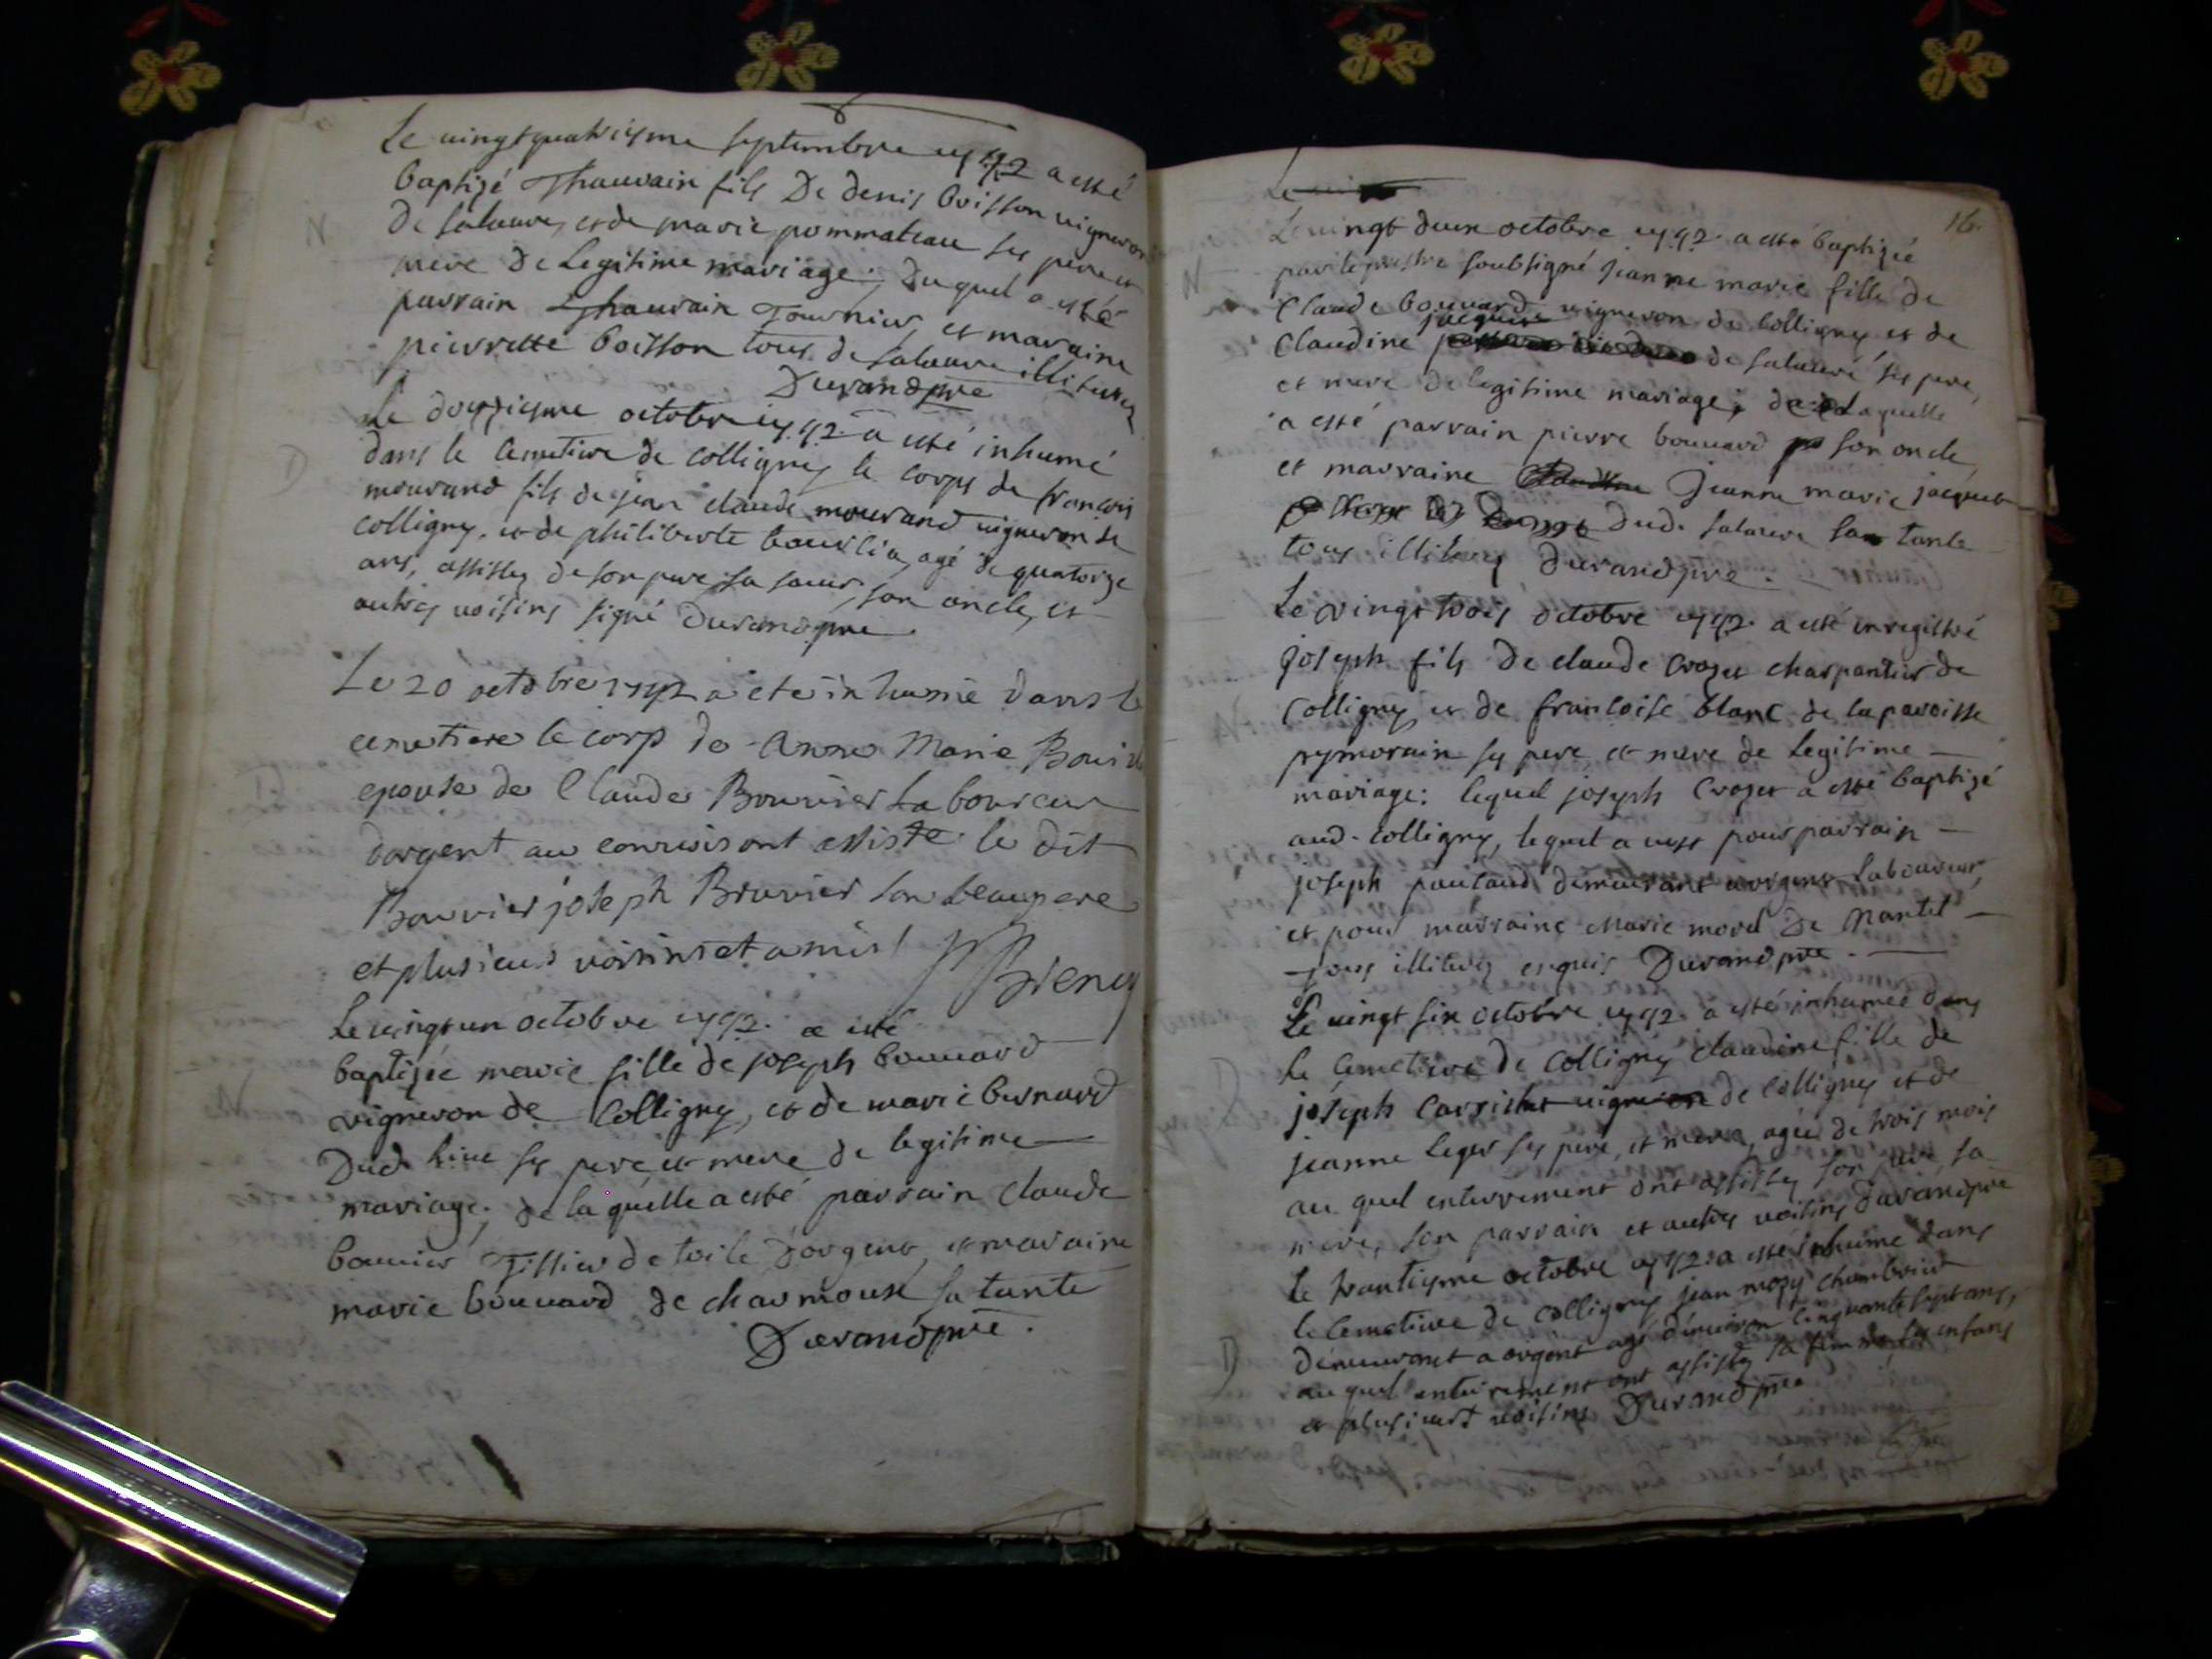 Le vingtquatrieyme septembre 1792 a esté
baptizé Thauvain fils De denis boisson vigneron
N
de salavre, et de marie pommateau ses pere et
mere de Legitime mariage; Duquel a esté
parrain Thauvain Tournier, et maraine
pierrette boisson tous de salavre illiterez
Durand ptre
Le douzieyme octobre 1792 a esté inhumé
D
dans le Cemetiere de colligny le corps de francois
mourand fils de jean claude mourand vigneron de
colligny, et de philiberte agé de quatorze
ans, assistez de son pere, sa soeur, son oncle, et
autres voisins signé Durand ptre
Le 20 octobre 1792 a eté inhumé dans le
cemetiere le corp de Anne Marie
epouse de Claude Bouvier Laboureur
dargent au convoi sont assisté le dit
Bouvier joseph Bouvier son beaupere
et plusieurs voisins et amis
Le vingt un octobre 1792. a esté
baptizée marie fille de joseph bouvard
vigneron de Colligny, et de marie bernard
Dud. lieu ses pere et mere de legitime
mariage; de laquelle a esté parrain claude
bouvier Tissier de toile Dorgent, et maraine
marie bouvard de charmoux sa tante
Durand ptre.
16.
Le
Le vingt deux octobre 1792. a esté baptizée
N
par le prestre soubsigné jeanne marie fille de
Claude bouvard vigneron de Colligny et de
jacquet
Claudine de salavre ses pere,
et mere de legitime mariage; de Laquelle
a esté parrain pierre bouvard son oncle,
et marraine Jeanne marie jacquet
dud. salavre sa tante
tous illiterez Durand ptre.
Le vingt trois octobre 1792. a esté enregistré
joseph fils de claude Crozet charpantier de
Colligny et de francoise blanc de la paroisse
pymorain ses pere et mere de Legitime
mariage: lequel joseph Crozet a esté baptizé
aud. colligny, lequel a pour parrain
joseph demeurant a orgent Laboureur,
et pour marraine Marie morel De Nantel
tous illiterez enquis Durand ptre.
Le vingt six octobre 1792. a esté inhumée dans
D
le Cemetiere de Colligny claudine fille de
joseph vigneron de Colligny et de
jeanne leger ses pere, et mere, agée de trois mois
au quel enterrement ont assistez son pere, sa
mere, son parrain et autres voisins Durand ptre
le trantieyme octobre 1792. a esté inhumé dans
le Cemetiere de Colligny jean
D
demeurant a orgent agé denviron Cinquante sept ans,
au quel enterrement ont assistez sa femme ses enfans
et plusieurs voisins Durand ptre